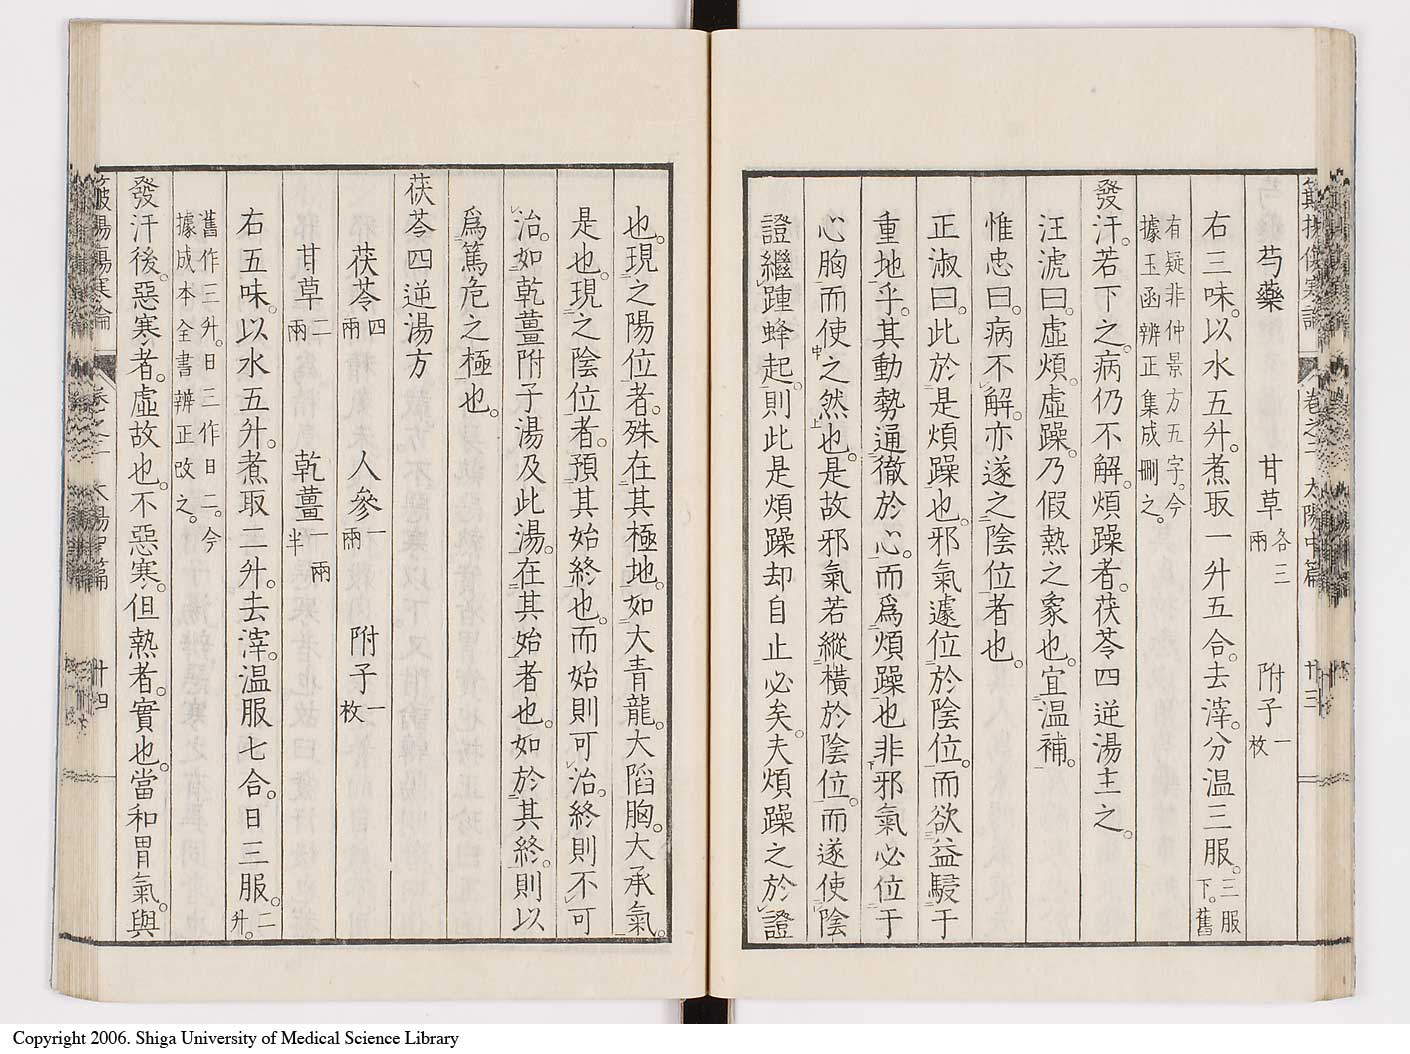 芍藥　甘草各三兩　附子一枚
右三味。以水五升。煮取一升五合。去滓。分溫三服。三服下。舊
有疑非仲景方五字。今
據玉函辨正集成刪之。
發汗。若下之。病仍不解。煩躁者。茯苓四逆湯主之。
汪琥曰。虛煩。虛躁。乃假熱之象也。宜溫補。
惟忠曰。病不解。亦遂之陰位者也。
正淑曰。此於是煩躁也。邪氣遽位於陰位。而欲益騣于
重地乎。其動勢通徹於心。而爲煩躁也非邪氣必位于
心胸而使之然也。是故邪氣若縱橫於陰位。而遂使陰
證繼踵蜂起。則此是煩躁却自止必矣。夫煩躁之於證
也。現之陽位者。殊在其極地。如大青龍。大陷胸。大承氣。
是也。現之陰位者。預其始終也。而始則可治。終則不可
治。如乾薑附子湯及此湯。在其始者也。如於其終。則以
爲篤危之極也。
茯苓四逆湯方
茯苓四兩　人參一兩　附子一枚
甘草二兩　乾薑一兩半
右五味。以水五升。煮取二升。去滓。溫服七合。日三服。二升。
舊作三升。日三作日二。今
據成本全書辨正改之。
發汗後。惡寒者。虛故也。不惡寒。但熱者。實也。當和胃氣。與
卷之二　太陽中篇　廿三
傷寒論　太陽中篇　廿四
Copyright 2006. Shiga University of Medical Science Library